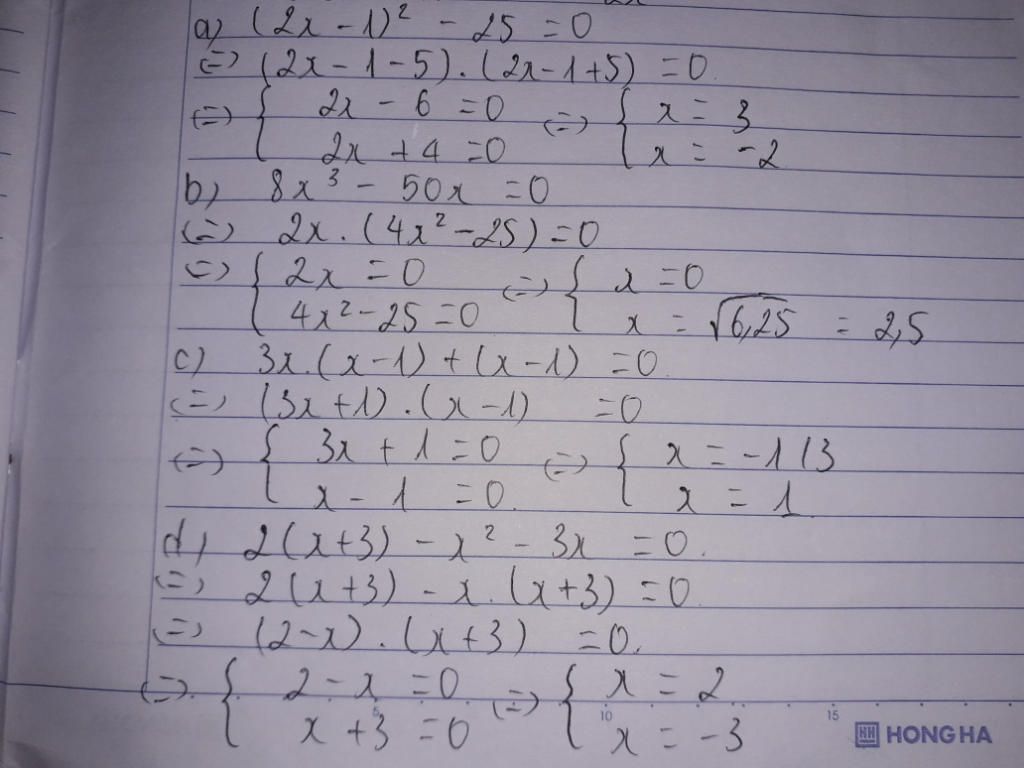 a) (2x - 1)² - 25 = 0
(=) (2x - 1 - 5) . (2x - 1 + 5) = 0
(=) { 2x - 6 = 0 (=) { x = 3
2x + 4 = 0 x = -2
b) 8x³ - 50x = 0
(=) 2x . (4x² - 25) = 0
(=) { 2x = 0 (=) { x = 0
4x² - 25 = 0 x = √6,25 = 2,5
c) 3x . (x - 1) + (x - 1) = 0
(=) (3x + 1) . (x - 1) = 0
(=) { 3x + 1 = 0 (=) { x = -1/3
x - 1 = 0 x = 1
d) 2(x + 3) - x² - 3x = 0.
(=) 2(x + 3) - x . (x + 3) = 0
(=) (2 - x) . (x + 3) = 0.
(=) { 2 - x = 0 (=) { x = 2
x + 3 = 0 x = -3
5 10 15
HH HONG HA